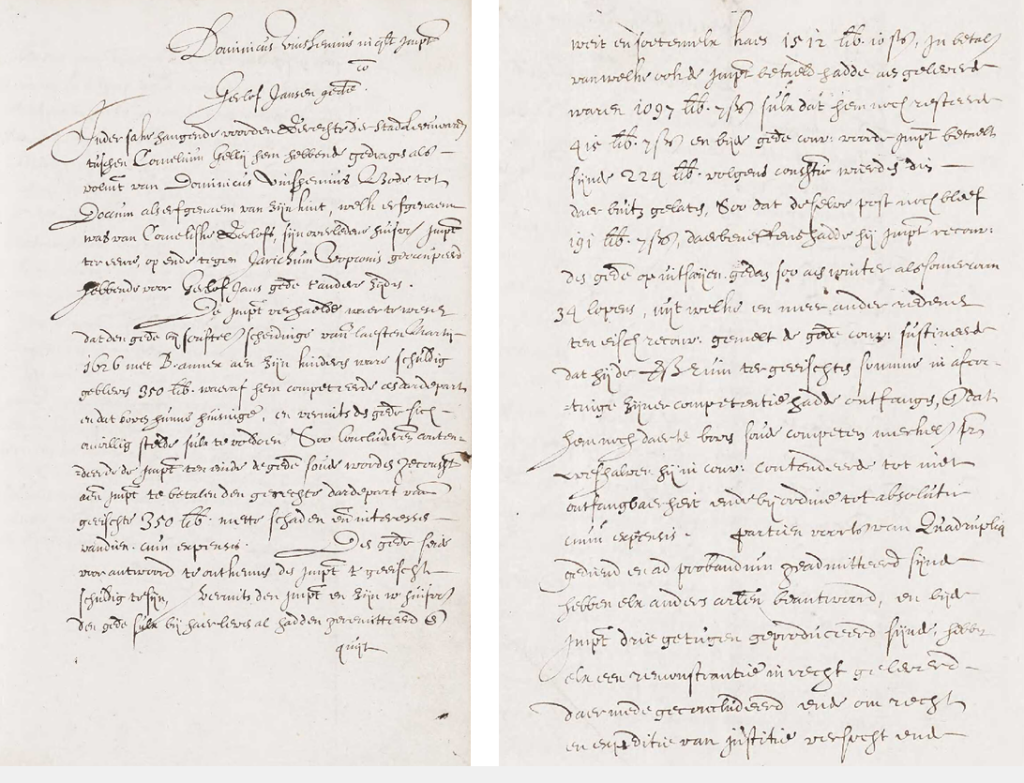 Dominicus Vinshemius in qlt Impt
co
Gerlof Jansen gede.
Inder sake hangende voor den Gerechte der Stad Leeuwarden
tusschen Cornelium hem hebbende gedragen als
volmt van Dominicus Vinshemius Bode tot
Doccum als erfgenaem van zijn kint, welk erfgenaem
was van Corneliske Gerlofs, sijn overledene huisfrou Impt
ter eenre, op ende tegen Jarichum geoccupeerd
hebbende voor Gerlof Jans gede t'ander zijds.
De Impt verhaelde waer te wesen
dat den gede bij scheidinge van laesten Martij
1626 met aen zijn kinders ware schuldig
gebleven 350 lib. waeraf hem competeerde
en dat boven hunne huisinge, en vermits de gede sich
onwillig stelde sulx te voldoen Soo Concludeerde conten-
deerde de Impt ten einde de gede soude worden
aen Impt te betalen den gerechte dardepart van
geeischte 350 lib. mette schaden en interessen
vandien. cum expensis. Des gede seide
voor antwoord te ontkennen des Impt t geeischt
schuldig te sijn, vermits den Impt en zijn w huisfrou
den gede sulx bij haer leven al hadden geremitteerd &
quijt
weit en soetemelk haer 1512 lib. 10 sts, In betal
van welke ook de Impt betaeld hadde als geleverd
waren 1097 lib. 7 sts sulx dat hem noch resteerde
415 lib. 7 sts en bijde gede conv: worde Impt betaelt
sijnde 224 lib. volgens
daer buiten gelaten, Soo dat deselve post noch bleef
191 lib. 7 sts, daerbeneffens hadde hij Impt reconv:
des gede op soo als winter als somer
34 lopens, uyt welke en meer ander redenen
ten eisch reconv: gemelt de gede conv: sustineerde
dat hij de ter geeischte somme in afcor-
tinge zijner competentie hadde ontfangen, & dat
hem noch daer te boven soude competeren merkel
weshalven hij in conv: contendeerde tot niet
ontfangbaerheit ende bij ordine tot absolutie
cum expensis. Partien voorts van Quadruplicq
gediend en ad probandum geadmitteerd sijnde
hebben elx anders beantwoord, en bijde
Impt drie getugen geproduceerd sijnde, hebben
elx een remonstrantie in recht geleverd
daermede geconcludeerd ende om recht
en expeditie van justitie versocht ende